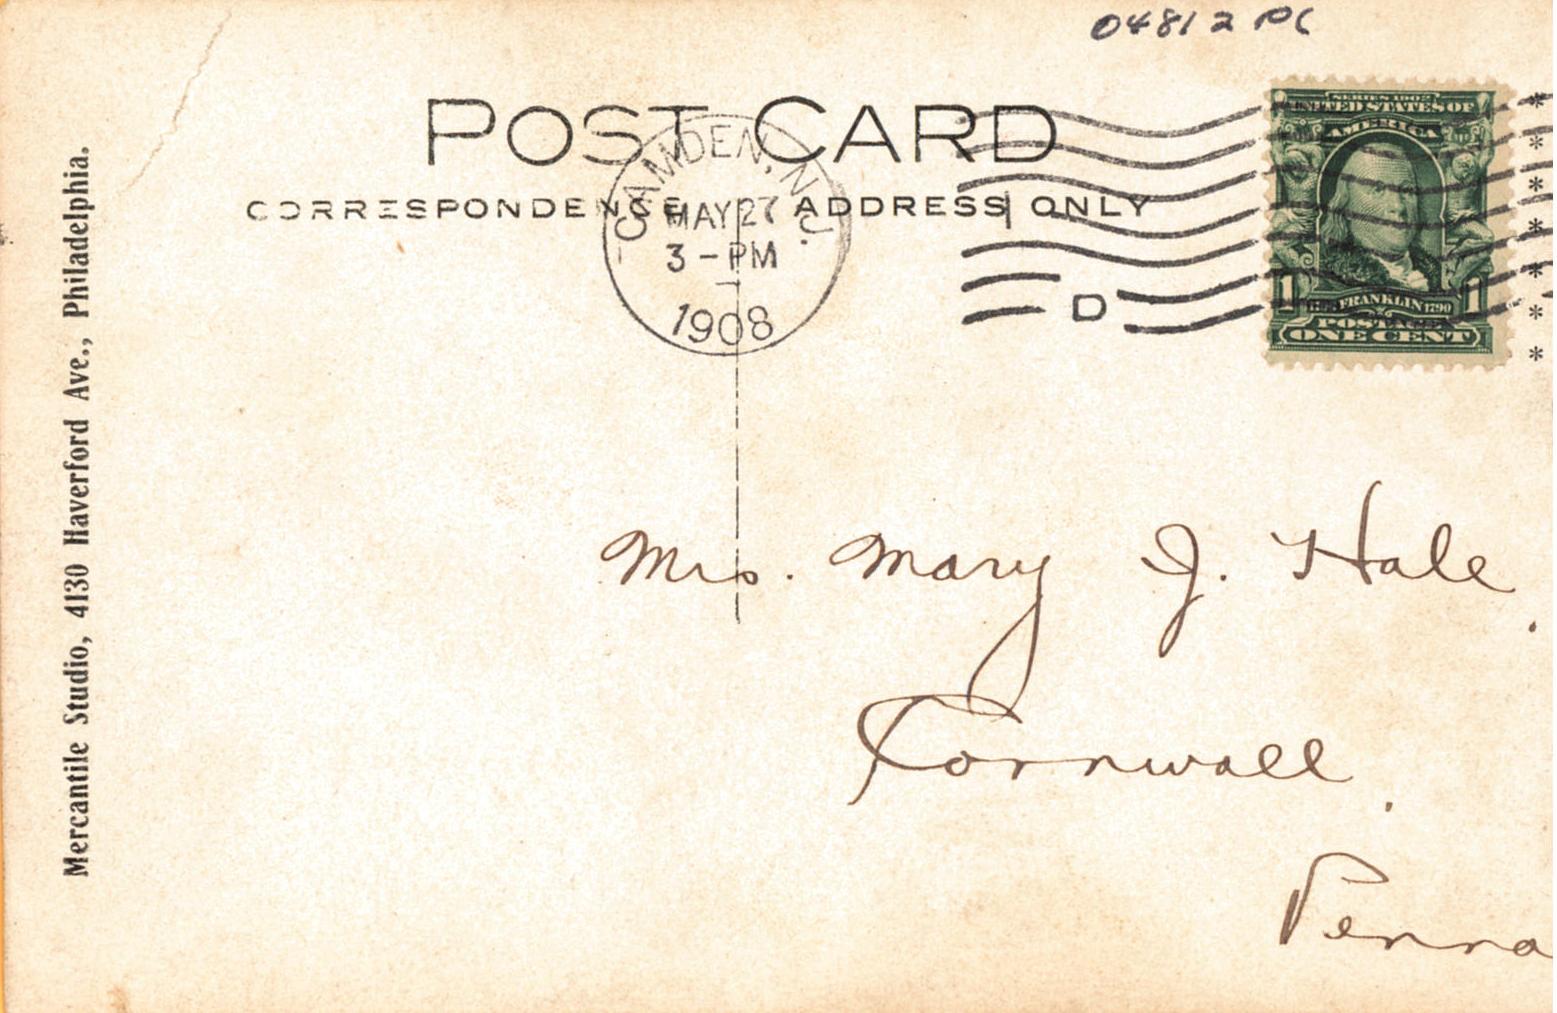 04812 PC
POST CARD
CORRESPONDENCE ADDRESS ONLY
CAMDEN, N.J.
MAY 27
3-PM
1908
D
SERIES 1902
UNITED STATES OF
AMERICA
1 FRANKLIN 1790 1
POSTAGE
ONE CENT
Mercantile Studio, 4130 Haverford Ave., Philadelphia.
Mrs. Mary J. Hale.
Cornwall.
Penna